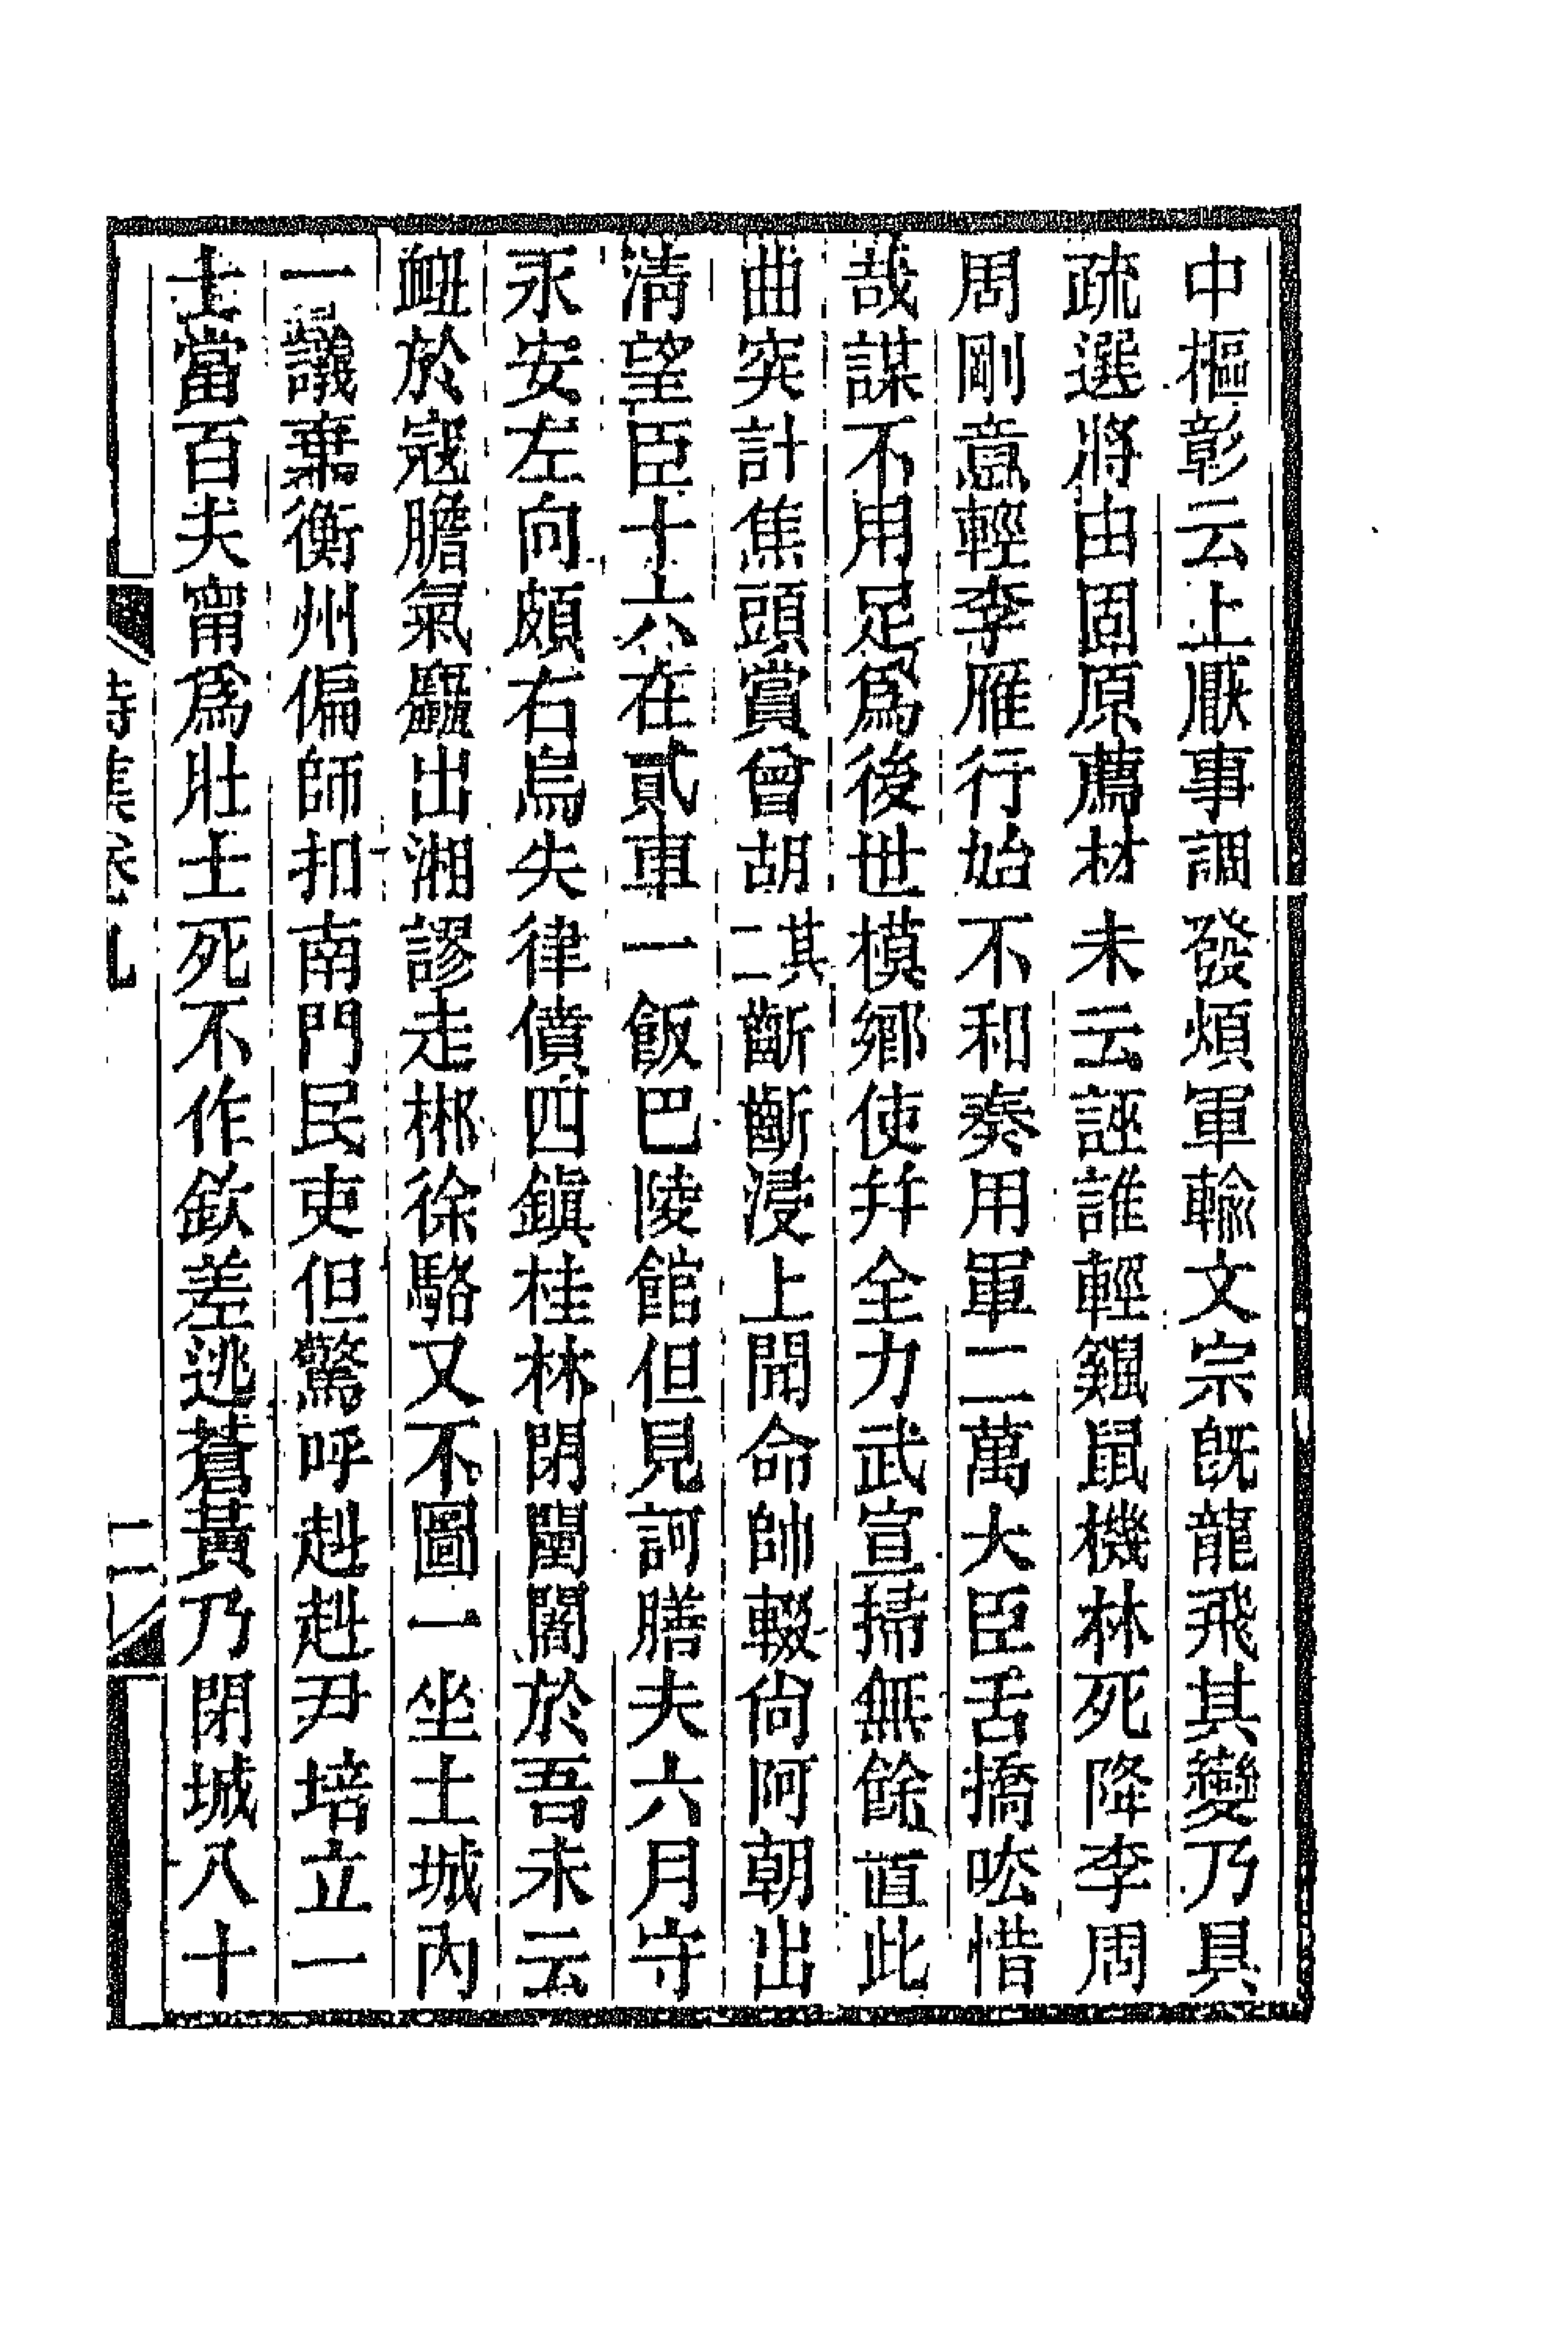 中樞彰云上厭事調發煩軍輸文宗旣龍飛其變乃具
疏選將由固原薦材未云誣誰輕鼷鼠機林死降李周
周剛意輕李雁行始不和奏用軍二萬大臣舌撟呿惜
哉謀不用足爲後世模鄉使幷全力武宣掃無餘直此
曲突計焦頭賞曾胡其二齗齗浸上聞命帥輟尙阿朝出
淸望臣十六在貳車一飯巴陵館但見訶膳夫六月守
永安左向頗右烏失律僨四鎭桂林閉闉闍於吾未云
衄於寇膽氣麤出湘謬走郴徐駱又不圖一坐土城內
一議棄衡州偏師扣南門民吏但驚呼赳赳尹培立一
士當百夫甯爲壯士死不作欽差逃蒼黃乃閉城八十
詩集卷九
二